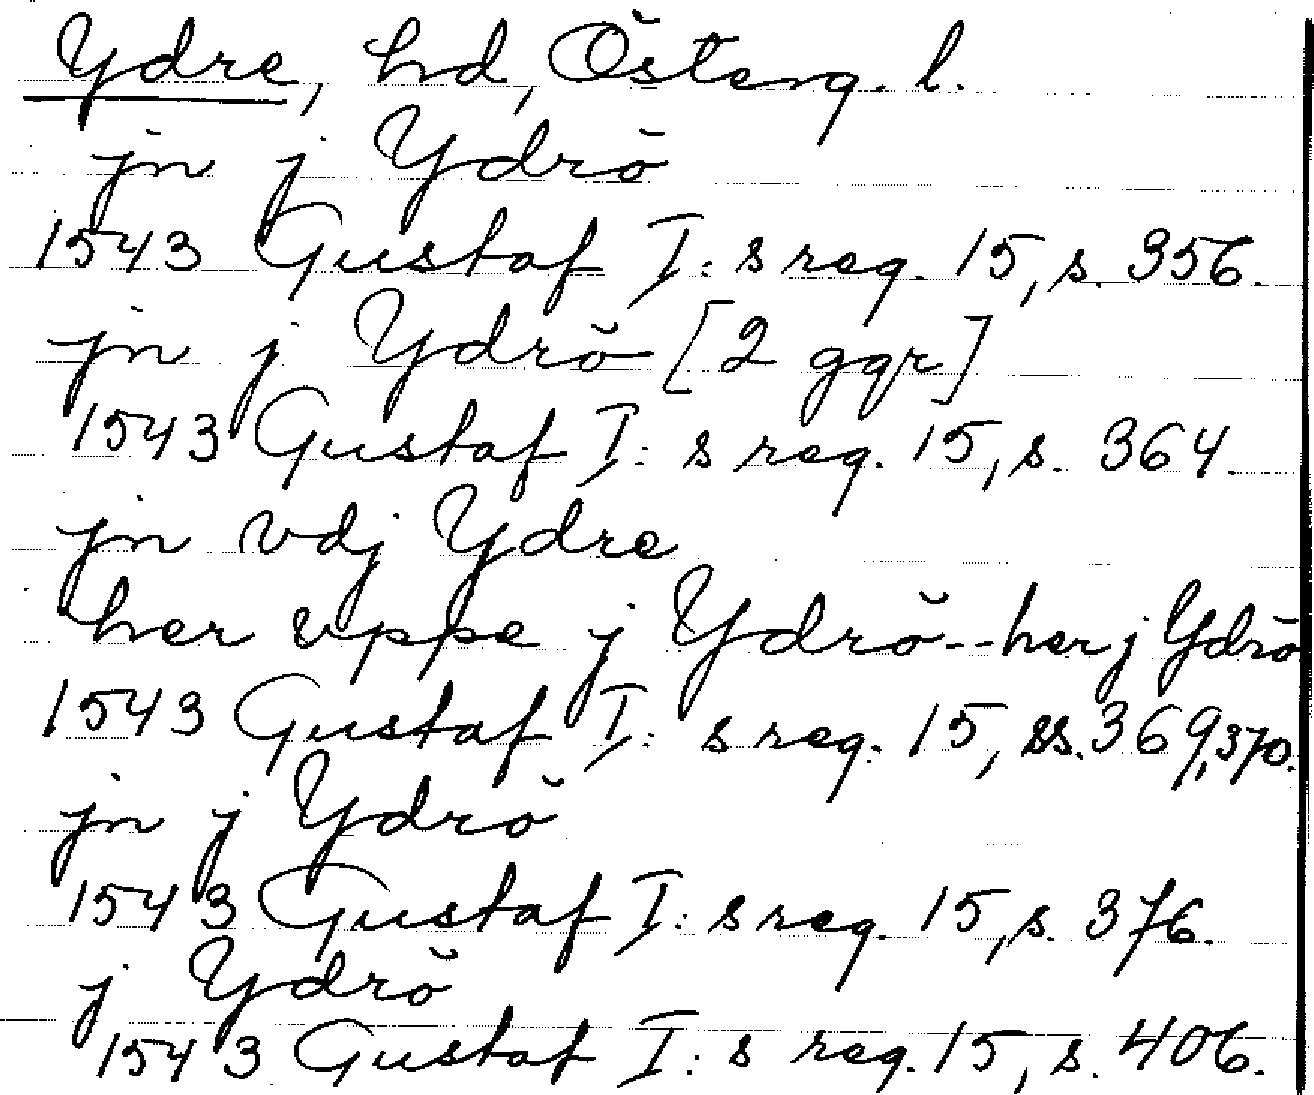 Ydre, hd, Österg. l.
jn j Ydrö
1543 Gustaf I:s reg. 15, s. 356.
jn j Ydrö [2 ggr]
1543 Gustaf I:s reg. 15, s. 364.
jn vdj Ydre
her vppe j Ydrö--her j Ydrö
1543 Gustaf I:s reg. 15, ss. 369, 370.
jn j Ydrö
1543 Gustaf I:s reg. 15, s. 376.
j Ydrö
1543 Gustaf I:s reg. 15, s. 406.